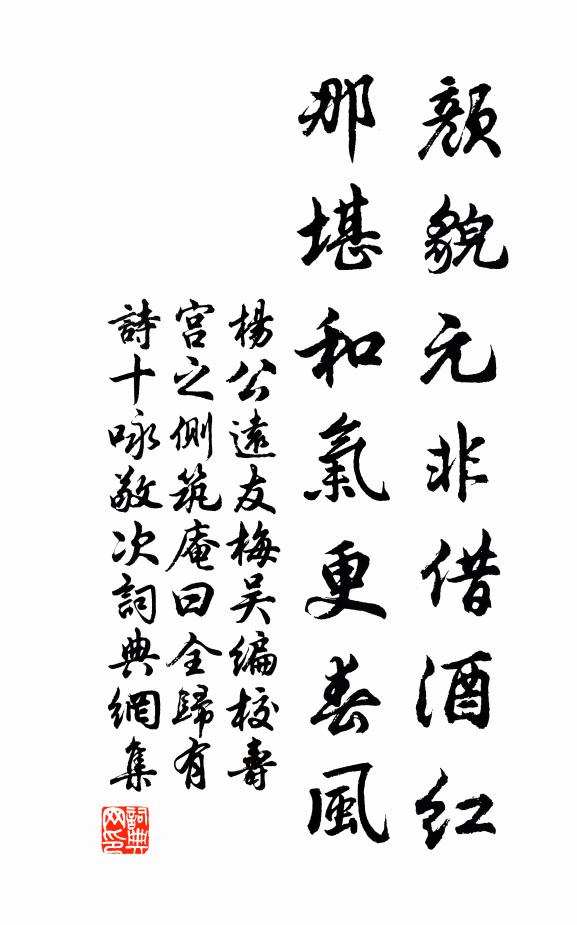 顏貌元非借酒紅
那堪和氣更春風
楊公遠友梅吴編校壽
宮之側筑庵曰全歸有
詩十咏敬次詞典網集
詞典
网印